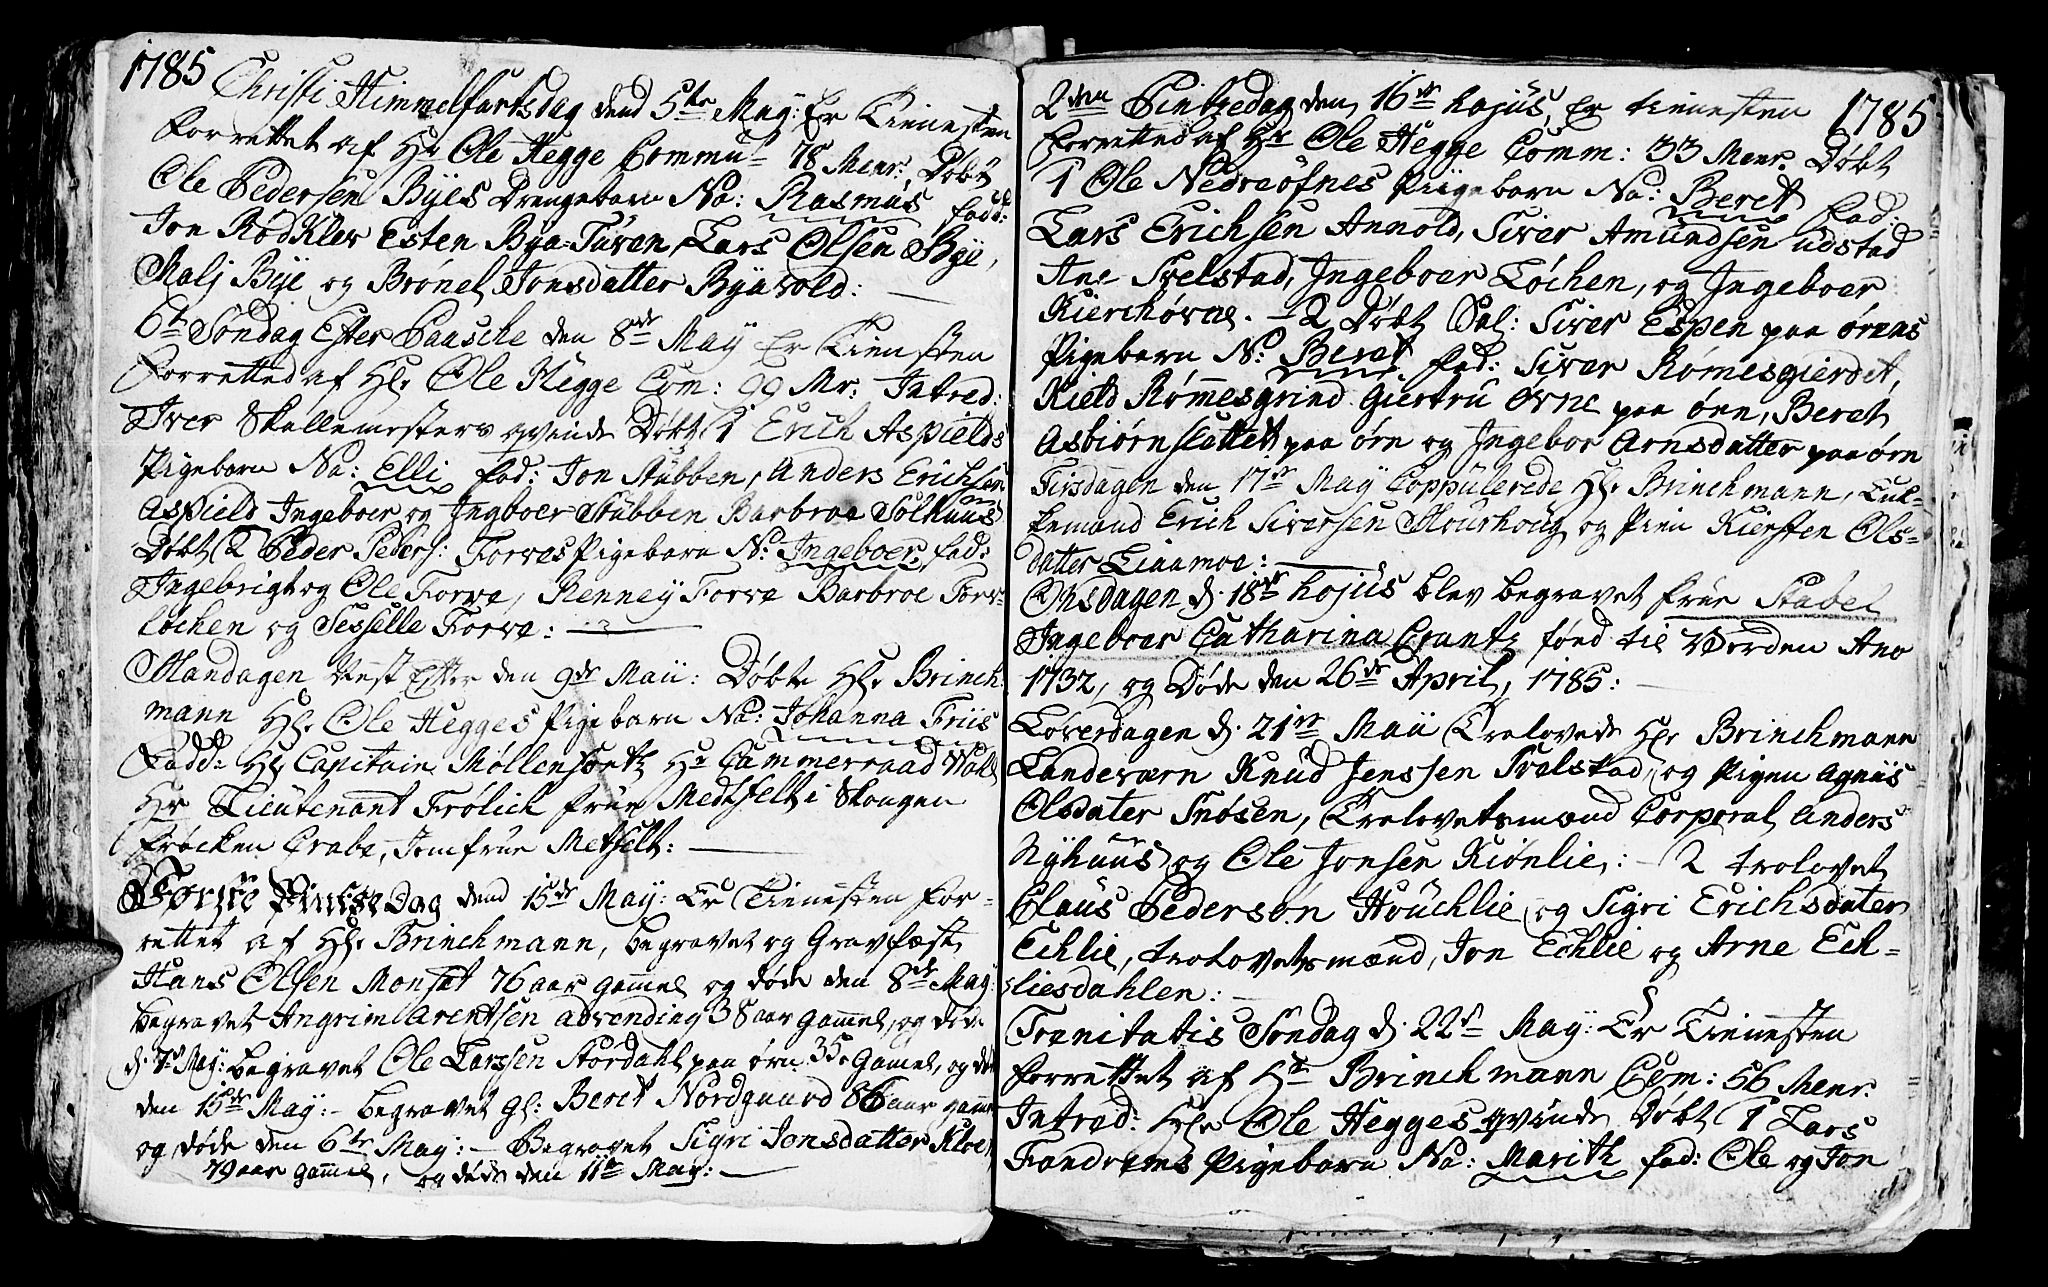 1785
Christi Himmelfartsdag dend 5te May: Er Tienesten
forrettet af Hr Ole Hegge Commu: 78 Menr: Døbt
Ole Pedersen Byes Drengebarn Na: Rasmus fadd:
Jon Rødkler Esten Bya-Tuven, Lars Olsen Bye,
Malj Bye og Brønel Jonsdatter Byavold:
6te Søndag Efter Paasche den 8de May Er Tiensten
forretted af Hr. Ole Hegge Com: 99 Mr: Introd:
Iver Skallemesters qvinde Døbt 1 Erich Aspields
Pigebarn Na: Elli fad: Jon Stubben, Anders Erichsen
Aspield Ingeboer og Ingboer Stubben Barbroe Solhuus
Døbt 2 Peder Peders: Forves Pigebarn N: Ingeboer fad:
Ingebrigt og Ole Forve, Renney Forve Barbroe Forv-
løchen og Sesselle Forve:
Mandagen Nest Efter den 9de Maii: Døbte Hr. Brinch
mann Hr. Ole Hegges Pigebarn Na: Johanna Friis
Fadd: Hr Capitain Møllenfortz Hr Cammerraad Wold
Hr Lieutenant Frølich frue Medtfelt i Skongen
frøcken Crabe, Jomfrue Metzelt:
Første Pintse Dag dend 15de May: Er Tienesten for-
rettet af Hr. Brinchmann, begravet og Gravfæst
Hans Olsen Monset 76 aar gamel og døde den 8de May:
begravet Angrim Arentsen advending 38 aar Gammel, og døde
d: 7d May: begravet Ole Larssen Stordahl paa ørn 35. Gamel, og død
den 15de May: - begravet Gl: Beret Nordgaard 86 aar gamel
og døde den 6te May: - Begravet Sigri Jonsdatter Kloe
79 aar gamel, og døde den 11te May:
1785
2den Pintsedag den 16de hujus, Er tienesten
forretted af Hr Ole Hegge Comm: 33 Menr. Døbt
1 Ole Nedreøfnes Piigebarn Na: Beret fad:
Lars Erichsen Annold, Siver Amundsen udstad
Ane Svelstad, Ingeboer Løchen, og Ingeboer
Kierchøvne. - 2 Døbt Sal: Siver Espen paa ørens
Pigebarn N: Beret fad: Siver Rømesgierdet,
Kield Rømmesgrind Giertru Øvne paa ørn, Beret
Asbiørnslattet paa ørn og Ingebor Arnsdatter paa ørn
Tirsdagen den 17de May Coppulerede Hr. Brinchmann,
Erich Siversen Mourhoug og Piin Kiersten Ols-
datter Liaamoe:
Onsdagen d. 18de hujus blev begravet frue Stabel
Ingeboer Catharina Crantz fød til Verden Ano
1732, og Døde den 26de April, 1785:
Loverdagen d. 21de Maii Trolovede Hr Brinchmann
Landeværn Knud Jenssen Svelstad, og Pigen Agniis
Olsdater Snøsen, Trolovetsmænd Corporal Anders
Nyhuus og Ole Jonsen Kiønlie: - 2 trolovet
Claus Pedersøn Houchlie og Sigri Erichsdater
Echlie, trolovetsmænd, Jon Echlie og Arne Ech-
liesdahlen:
Trenitatis Søndag d: 22de May: Er Tienesten
forrettet af Hr Brinchmann Com: 56 Menr.
Introd: Hr. Ole Hegges qvinde Døbt 1 Lars
Fandrems Pigebarn Na: Marith fad: Ole og Jon